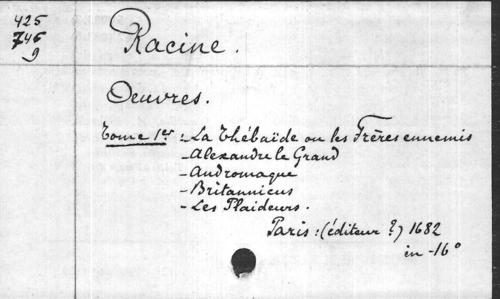 425
746
9
Racine.
Oeuvres.
Tome 1er : La Thébaïde ou les Frères ennemis
- Alexandre le Grand
- Andromaque
- Britannicus
- Les Plaideurs.
Paris : (éditeur ?) 1682
in-16°